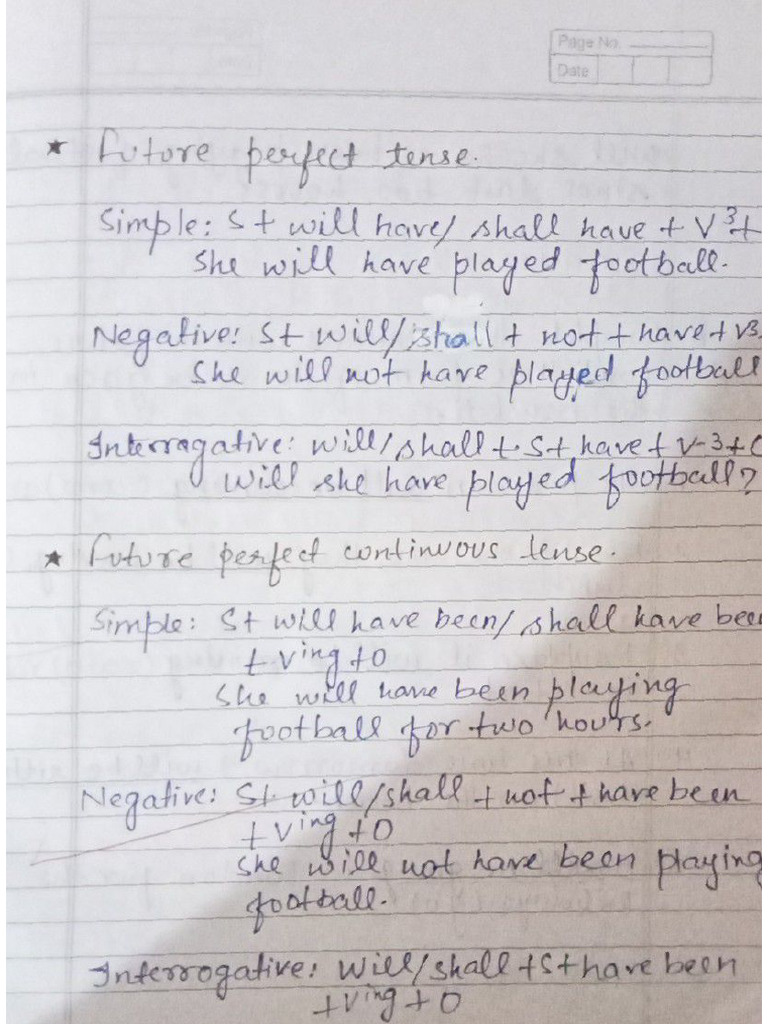 Page No.
Date
★ Future perfect tense.
Simple: S + will have/ shall have + V³+
She will have played football.
Negative: S+ will/shall + not + have + v3
She will not have played football
Interragative: will/shall + S+ have + v-3+
Will she have played football?
★ Future perfect continuous tense.
Simple: S+ will have been/ shall have bee
+ Ving +O
She will have been playing
football for two hours.
Negative: S+ will/shall + not + have been
+ Ving +O
She will not have been playing
football.
Interrogative: will/shall +S+ have been
+Ving + O